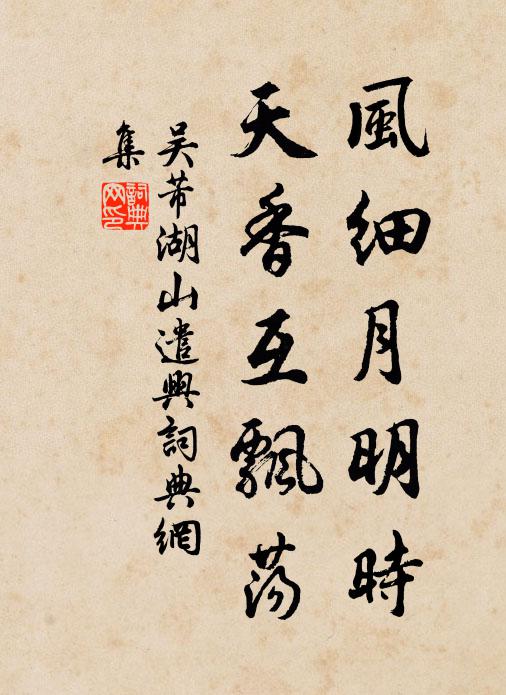 風細月明時
天香互飄蕩
吳芾湖山遣興詞典網
集
詞典網印